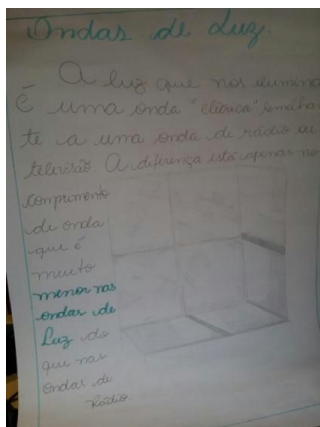 Ondas de Luz.
A luz que nos ilumina
é uma onda "elétrica" semelhan
te a uma onda de rádio ou
televisão. A diferença está apenas no
comprimento
de onda
que é
muito
menor nas
ondas de
Luz do
que nas
ondas de
Rádio